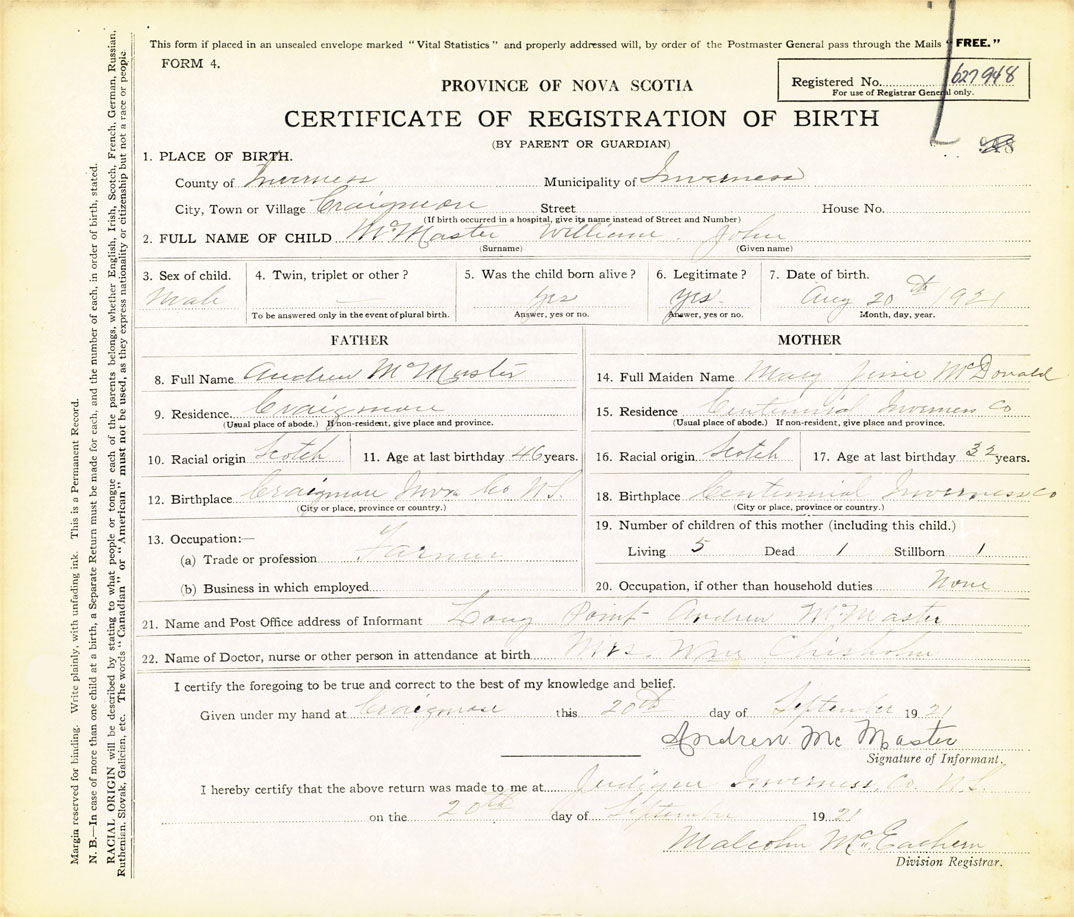 This form if placed in an unsealed envelope marked "Vital Statistics" and properly addressed will, by order of the Postmaster General pass through the Mails "FREE."
FORM 4.
PROVINCE OF NOVA SCOTIA
Registered No. 627948
For use of Registrar General only.
CERTIFICATE OF REGISTRATION OF BIRTH
(BY PARENT OR GUARDIAN)
1. PLACE OF BIRTH.
County of Inverness Municipality of Inverness
City, Town or Village Craigmore Street House No.
(If birth occurred in a hospital, give its name instead of Street and Number)
2. FULL NAME OF CHILD McMaster William John
(Surname) (Given name)
3. Sex of child. 4. Twin, triplet or other? 5. Was the child born alive? 6. Legitimate? 7. Date of birth.
Male — Yes Yes. Aug 20th 1921
To be answered only in the event of plural birth. Answer, yes or no. Answer, yes or no. Month, day, year.
FATHER
8. Full Name Andrew McMaster
9. Residence Craigmore
(Usual place of abode.) If non-resident, give place and province.
10. Racial origin Scotch 11. Age at last birthday 46 years.
12. Birthplace Craigmore Inv. Co N.S.
(City or place, province or country.)
13. Occupation:—
(a) Trade or profession Farmer
(b) Business in which employed
MOTHER
14. Full Maiden Name Mary Jessie McDonald
15. Residence Centennial Inverness Co
(Usual place of abode.) If non-resident, give place and province.
16. Racial origin Scotch 17. Age at last birthday 32 years.
18. Birthplace Centennial Inverness Co
(City or place, province or country.)
19. Number of children of this mother (including this child.)
Living 5 Dead 1 Stillborn 1
20. Occupation, if other than household duties None
21. Name and Post Office address of Informant Long Point Andrew McMaster
22. Name of Doctor, nurse or other person in attendance at birth Mrs. Wm Chisholm
I certify the foregoing to be true and correct to the best of my knowledge and belief.
Given under my hand at Craigmore this 20th day of September 1921
Andrew McMaster
Signature of Informant.
I hereby certify that the above return was made to me at Judique Inverness, Co. N.S.
on the 20th day of September 1921
Malcolm McEachern
Division Registrar.
Margin reserved for binding. Write plainly, with unfading ink. This is a Permanent Record.
N. B.—In case of more than one child at a birth, a Separate Return must be made for each, and the number of each, in order of birth, stated.
RACIAL ORIGIN will be described by stating to what people or tongue each of the parents belongs, whether English, Irish, Scotch, French, German, Russian,
Ruthenian, Slovak, Galician, etc. The words "Canadian" or "American" must not be used, as they express nationality or citizenship but not a race or people